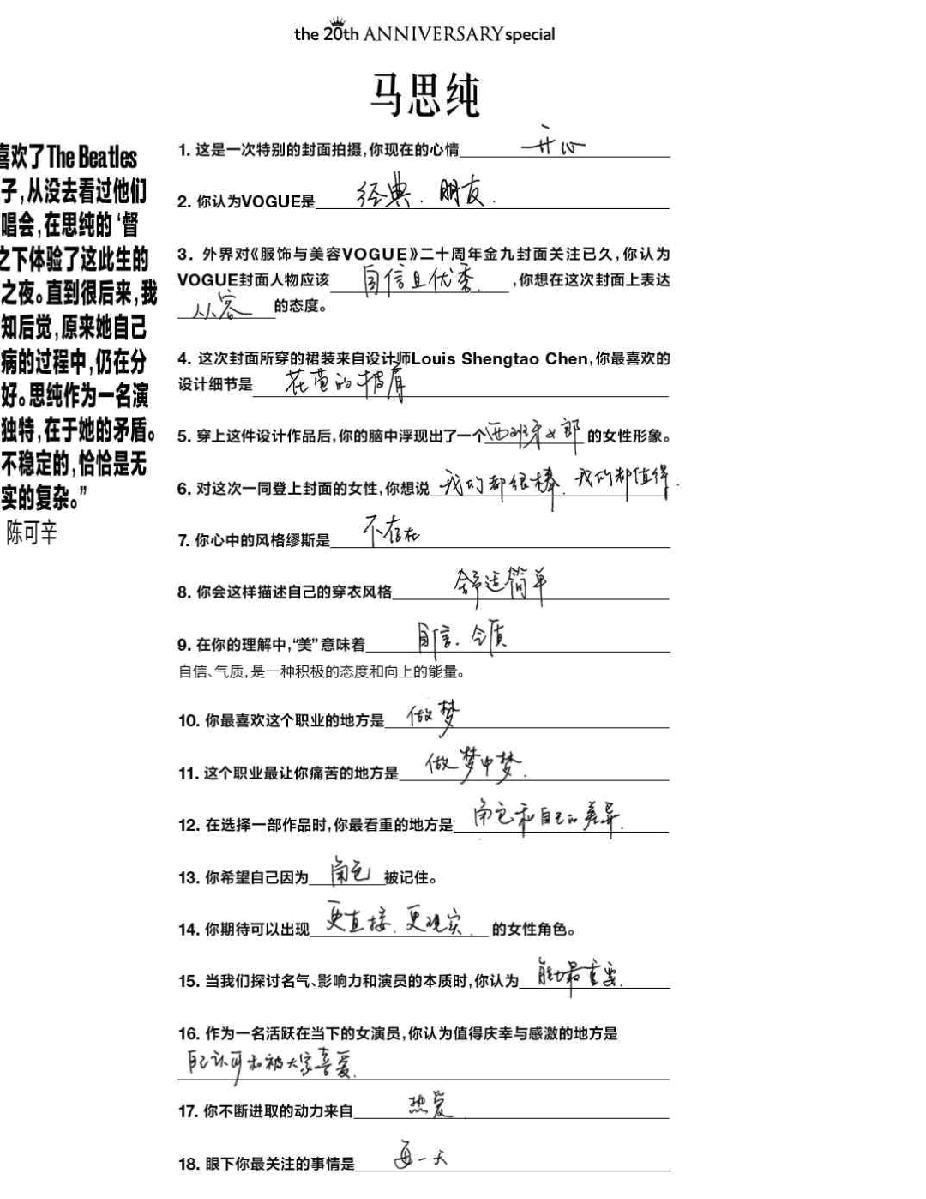 the 20th ANNIVERSARY special
马思纯
喜欢了The Beatles
子,从没去看过他们
唱会,在思纯的‘督
之下体验了这此生的
之夜。直到很后来,我
知后觉,原来她自己
病的过程中,仍在分
好。思纯作为一名演
独特,在于她的矛盾。
不稳定的,恰恰是无
实的复杂。”
陈可辛
1. 这是一次特别的封面拍摄,你现在的心情 开心
2. 你认为VOGUE是 经典、朋友.
3. 外界对《服饰与美容VOGUE》二十周年金九封面关注已久,你认为
VOGUE封面人物应该 自信且优秀. ,你想在这次封面上表达
从容 的态度。
4. 这次封面所穿的裙装来自设计师Louis Shengtao Chen,你最喜欢的
设计细节是 花苞的披肩
5. 穿上这件设计作品后,你的脑中浮现出了一个 西班牙女郎 的女性形象。
6. 对这次一同登上封面的女性,你想说 我们都很棒、我们都值得.
7. 你心中的风格缪斯是 不存在
8. 你会这样描述自己的穿衣风格 舒适简单
9. 在你的理解中,“美”意味着 自信、气质
自信、气质,是一种积极的态度和向上的能量。
10. 你最喜欢这个职业的地方是 做梦
11. 这个职业最让你痛苦的地方是 做梦中梦.
12. 在选择一部作品时,你最看重的地方是 角色和自己的差异.
13. 你希望自己因为 角色 被记住。
14. 你期待可以出现 更直接、更现实. 的女性角色。
15. 当我们探讨名气、影响力和演员的本质时,你认为 最重要.
16. 作为一名活跃在当下的女演员,你认为值得庆幸与感激的地方是
自己认可和被大家喜爱.
17. 你不断进取的动力来自 热爱
18. 眼下你最关注的事情是 每一天